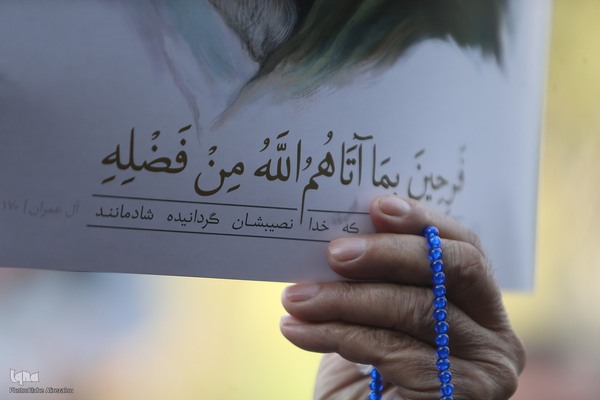 فَرِحِينَ بِمَا آتَاهُمُ اللَّهُ مِنْ فَضْلِهِ
که خدا نصیبشان گردانیده شادمانند
آل عمران | ۱۷۰
iqna
Photo: